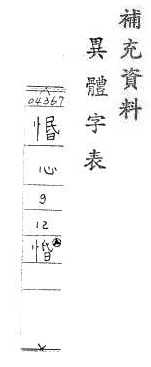 補充資料
異體字表
04367
惽
心
9
12
惛